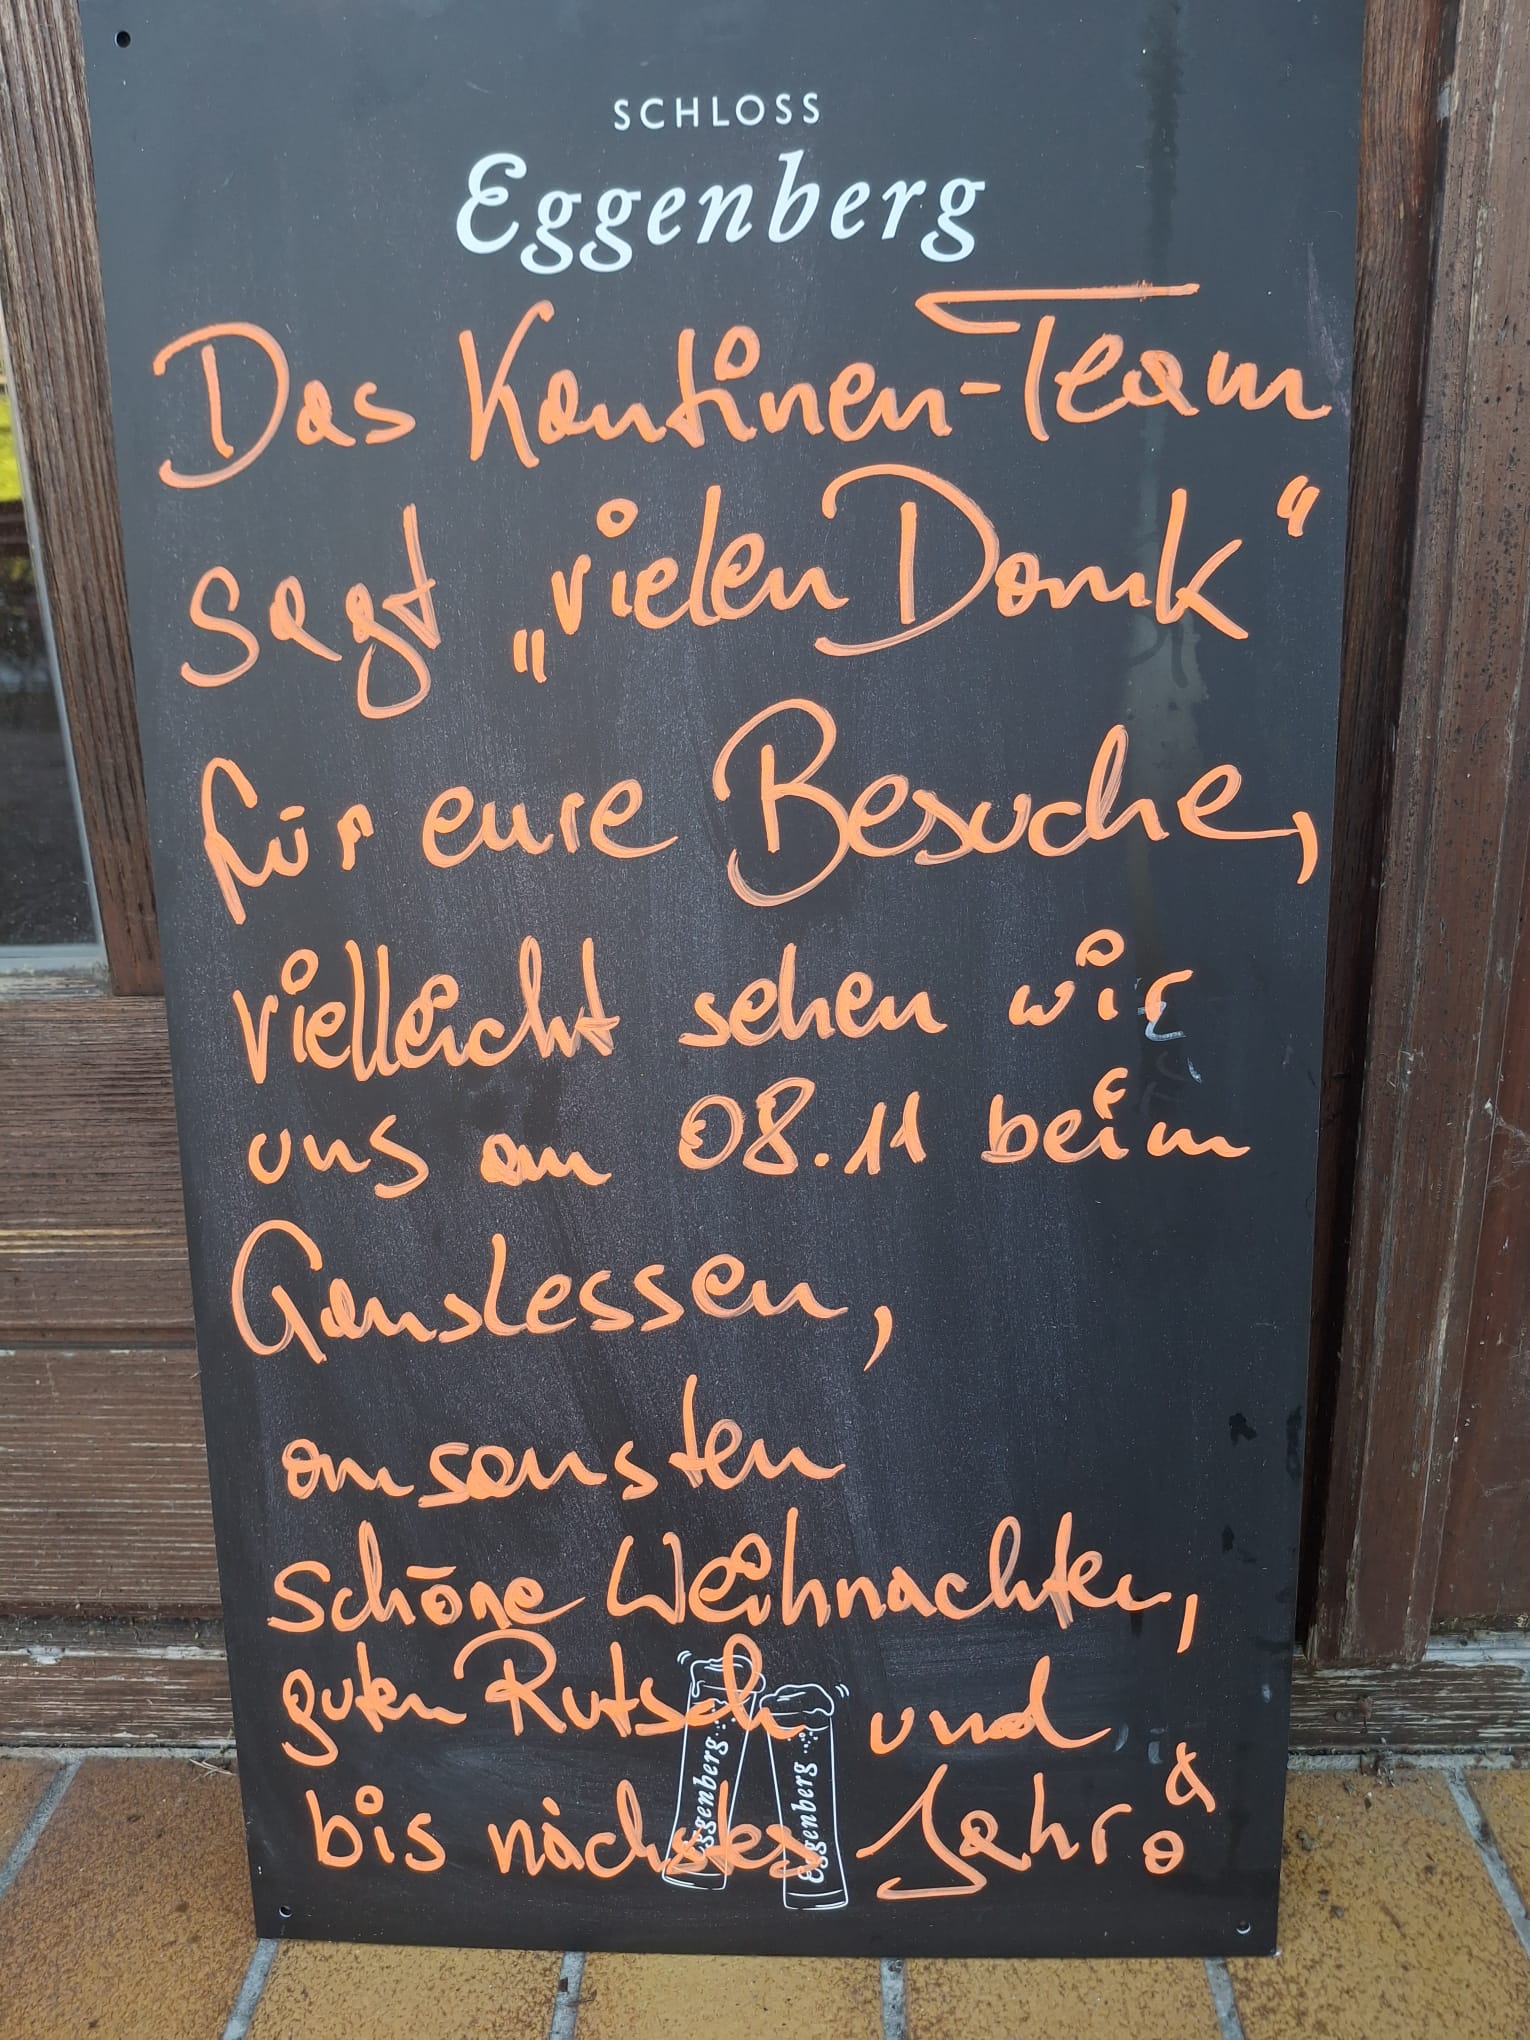 SCHLOSS
Eggenberg
Das Kantinen-Team
sagt „vielen Dank“
für eure Besuche,
vielleicht sehen wir
uns am 08.11 beim
Ganslessen,
ansonsten
schöne Weihnachten,
guten Rutsch und
bis nächstes Jahr!
Eggenberg
Eggenberg